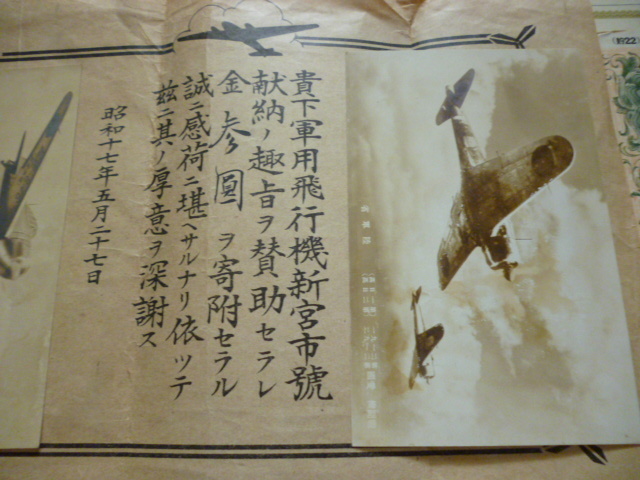 貴下軍用飛行機新宮市號
献納ノ趣旨ヲ賛助セラレ
金参圓ヲ寄附セラル
誠ニ感荷ニ堪ヘサルナリ依ッテ
茲ニ其ノ厚意ヲ深謝ス
昭和十七年五月二十七日
1922